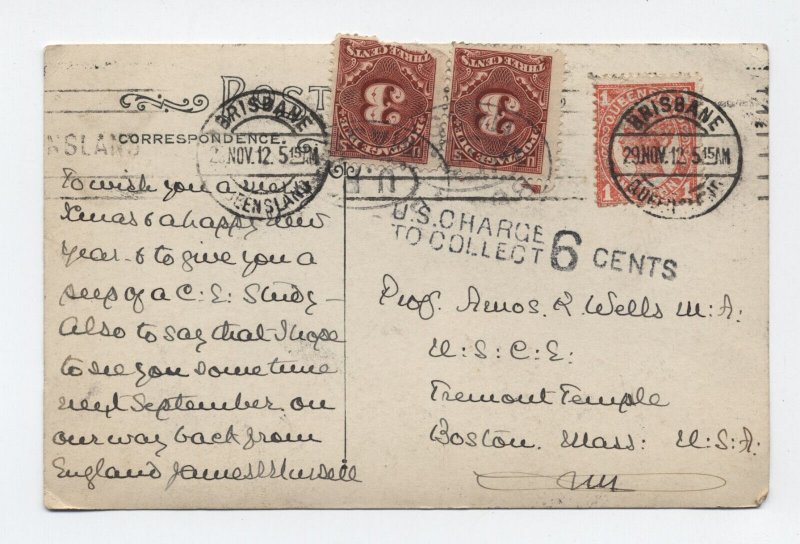 POST
CORRESPONDENCE.
NSLAND
BRISBANE
29.NOV.12.5 15AM
QUEENSLAND
THREE CENTS
3
POSTAGE DUE
THREE CENTS
3
POSTAGE DUE
1 QUEEN
1
BRISBANE
29.NOV.12.5 15AM
QUEENSLAND
U.S. CHARGE
TO COLLECT 6 CENTS
To wish you a merry
Xmas & a happy New
Year & to give you a
peep of a C.E. Study -
Also to say that I hope
to see you sometime
next September on
our way back from
England James Mursell
Prof. Amos. R. Wells M.A.
U.S.C.E.
Tremont Temple
Boston. Mass. U.S.A.